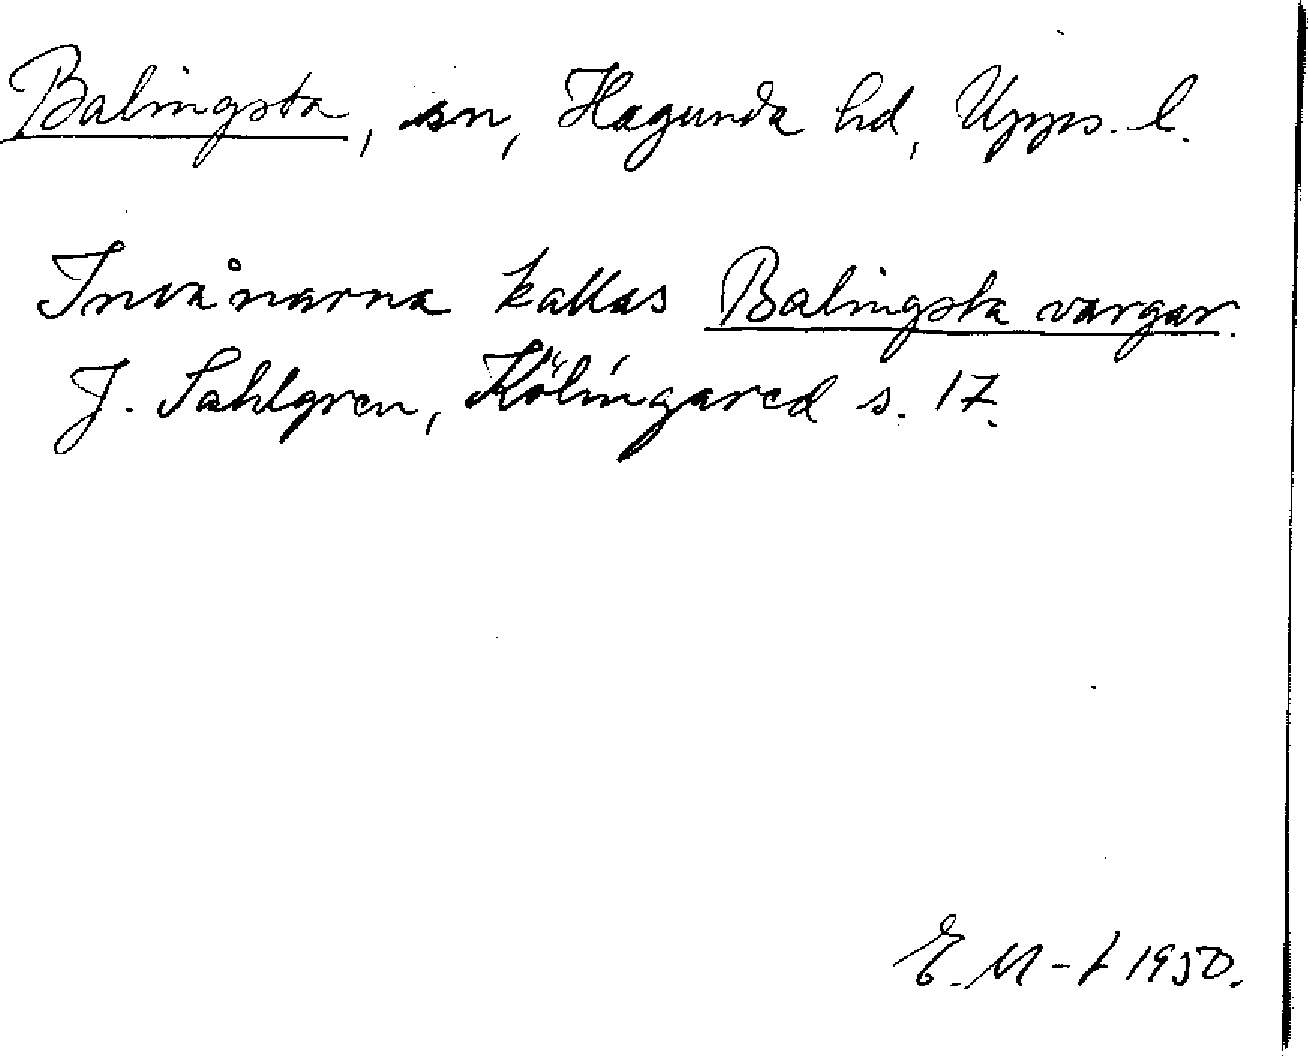 Balingsta, sn, Hagunda hd, Upps. l.
Invånarna kallas Balingsta vargar.
J. Sahlgren, Kölingared s. 17.
E. M-t 1950.